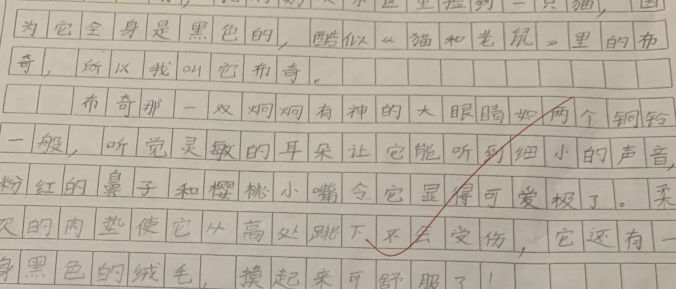 里捡到一只猫，因
为它全身是黑色的，酷似《猫和老鼠》里的布
奇，所以我叫它布奇。
布奇那一双炯炯有神的大眼睛如两个铜铃
一般，听觉灵敏的耳朵让它能听到细小的声音，
粉红的鼻子和樱桃小嘴令它显得可爱极了。柔
的肉垫使它从高处跳下不会受伤，它还有一
身黑色的绒毛，摸起来可舒服了！